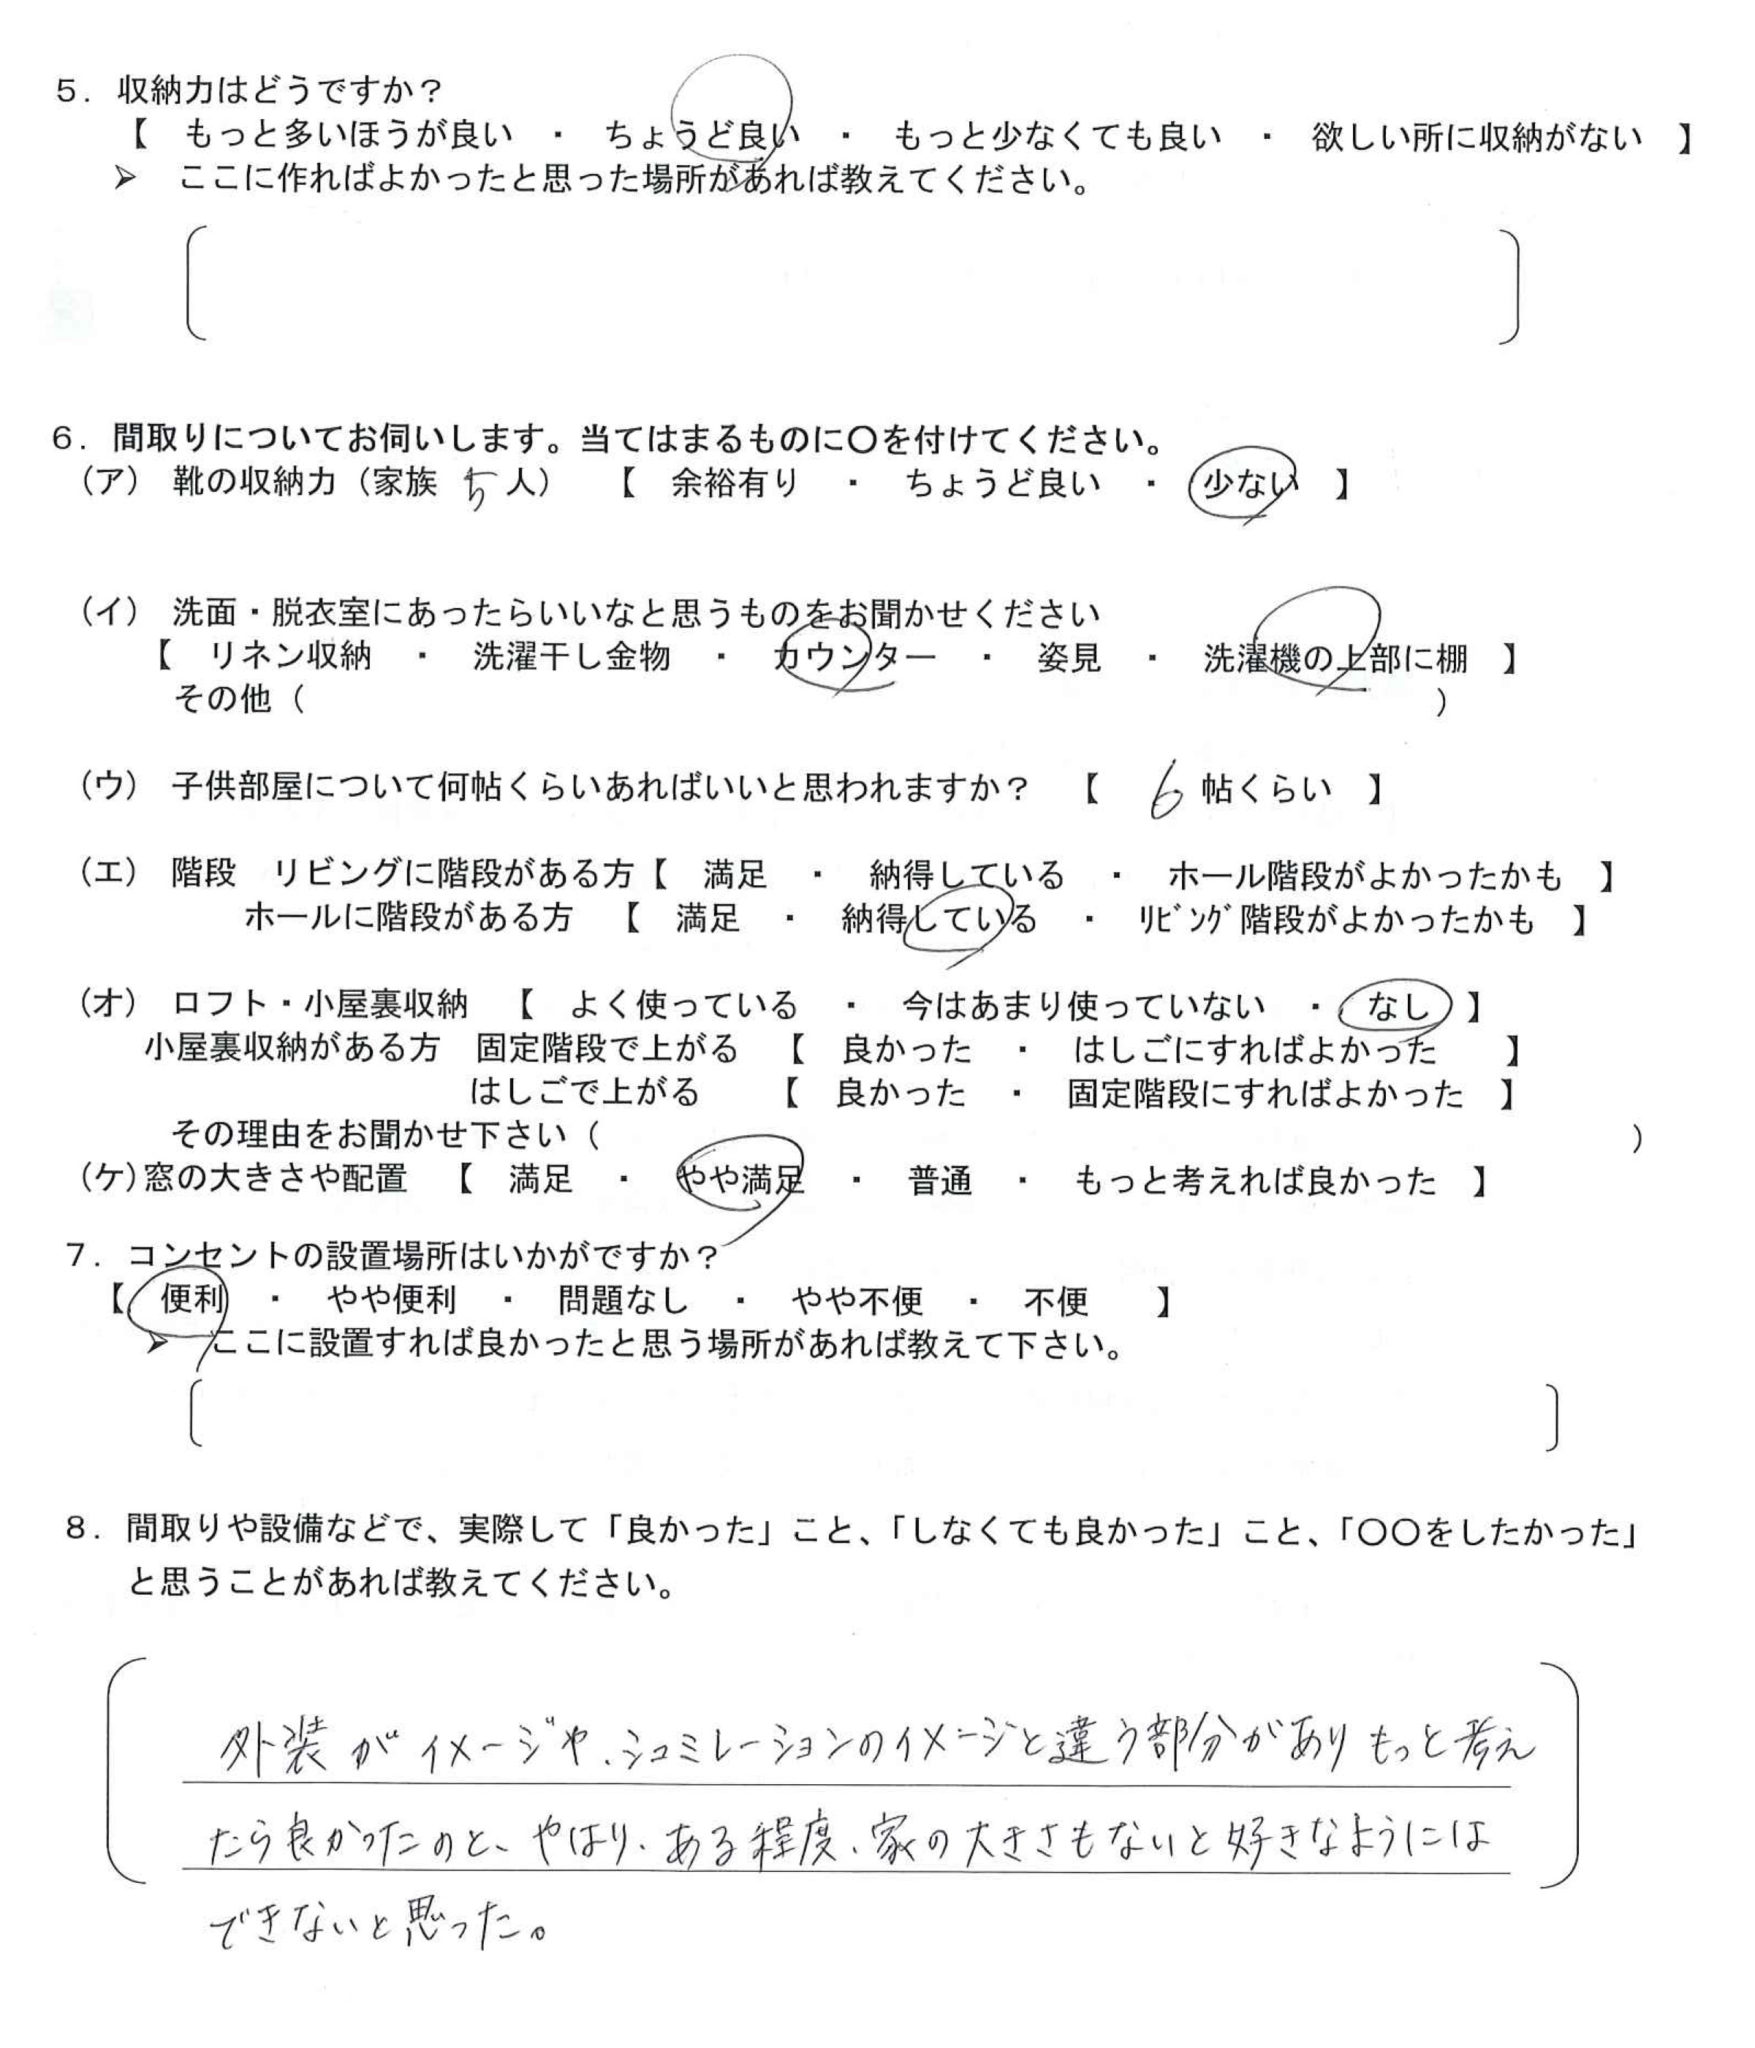 5．収納力はどうですか？
【　もっと多いほうが良い　・　ちょうど良い　・　もっと少なくても良い　・　欲しい所に収納がない　】
➢　ここに作ればよかったと思った場所があれば教えてください。
6．間取りについてお伺いします。当てはまるものに〇を付けてください。
（ア）　靴の収納力（家族　5　人）　【　余裕有り　・　ちょうど良い　・　少ない　】
（イ）　洗面・脱衣室にあったらいいなと思うものをお聞かせください
【　リネン収納　・　洗濯干し金物　・　カウンター　・　姿見　・　洗濯機の上部に棚　】
その他（　　　　　　　　　　）
（ウ）　子供部屋について何帖くらいあればいいと思われますか？　【　6　帖くらい　】
（エ）　階段　リビングに階段がある方【　満足　・　納得している　・　ホール階段がよかったかも　】
ホールに階段がある方　【　満足　・　納得している　・　ﾘﾋﾞﾝｸﾞ階段がよかったかも　】
（オ）　ロフト・小屋裏収納　【　よく使っている　・　今はあまり使っていない　・　なし　】
小屋裏収納がある方　固定階段で上がる　【　良かった　・　はしごにすればよかった　】
はしごで上がる　【　良かった　・　固定階段にすればよかった　】
その理由をお聞かせ下さい（　　　　　　　　　　）
（ケ）窓の大きさや配置　【　満足　・　やや満足　・　普通　・　もっと考えれば良かった　】
7．コンセントの設置場所はいかがですか？
【　便利　・　やや便利　・　問題なし　・　やや不便　・　不便　】
➢　ここに設置すれば良かったと思う場所があれば教えて下さい。
8．間取りや設備などで、実際して「良かった」こと、「しなくても良かった」こと、「〇〇をしたかった」
と思うことがあれば教えてください。
外装がイメージや、シュミレーションのイメージと違う部分がありもっと考え
たら良かったのと、やはり、ある程度、家の大きさもないと好きなようには
できないと思った。